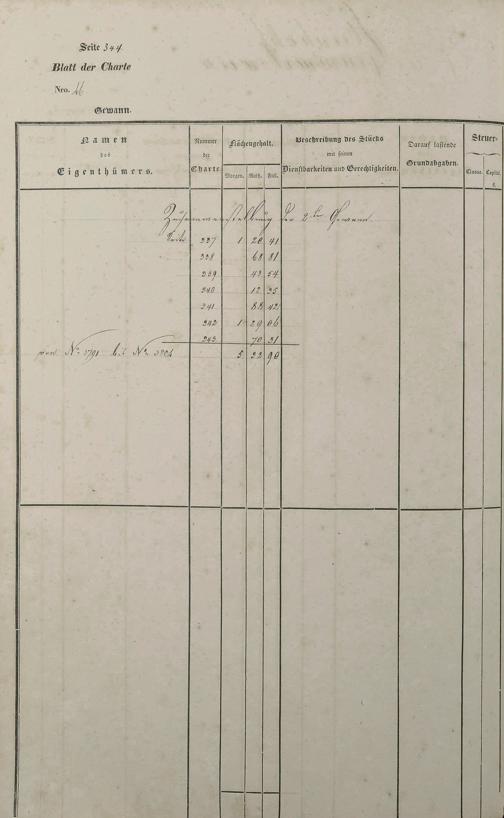 Seite 344
Blatt der Charte
Nro. 46
Gewann.
Namen des Eigenthümers.
Nummer der Charte
Flächengehalt.
Morgen. Ruth. Fuß.
Beschreibung des Stücks mit seinen Dienstbarkeiten und Gerechtigkeiten.
Darauf lastende Grundabgaben.
Steuer-
Classe. Capital. fl.
Zusammenstellung der 2ten Gewann
Seite 337 1 20 41
338 68 81
339 43 54
340 12 35
341 88 42
342 1 29 06
343 70 31
von No 3791 bis No 5 32 90